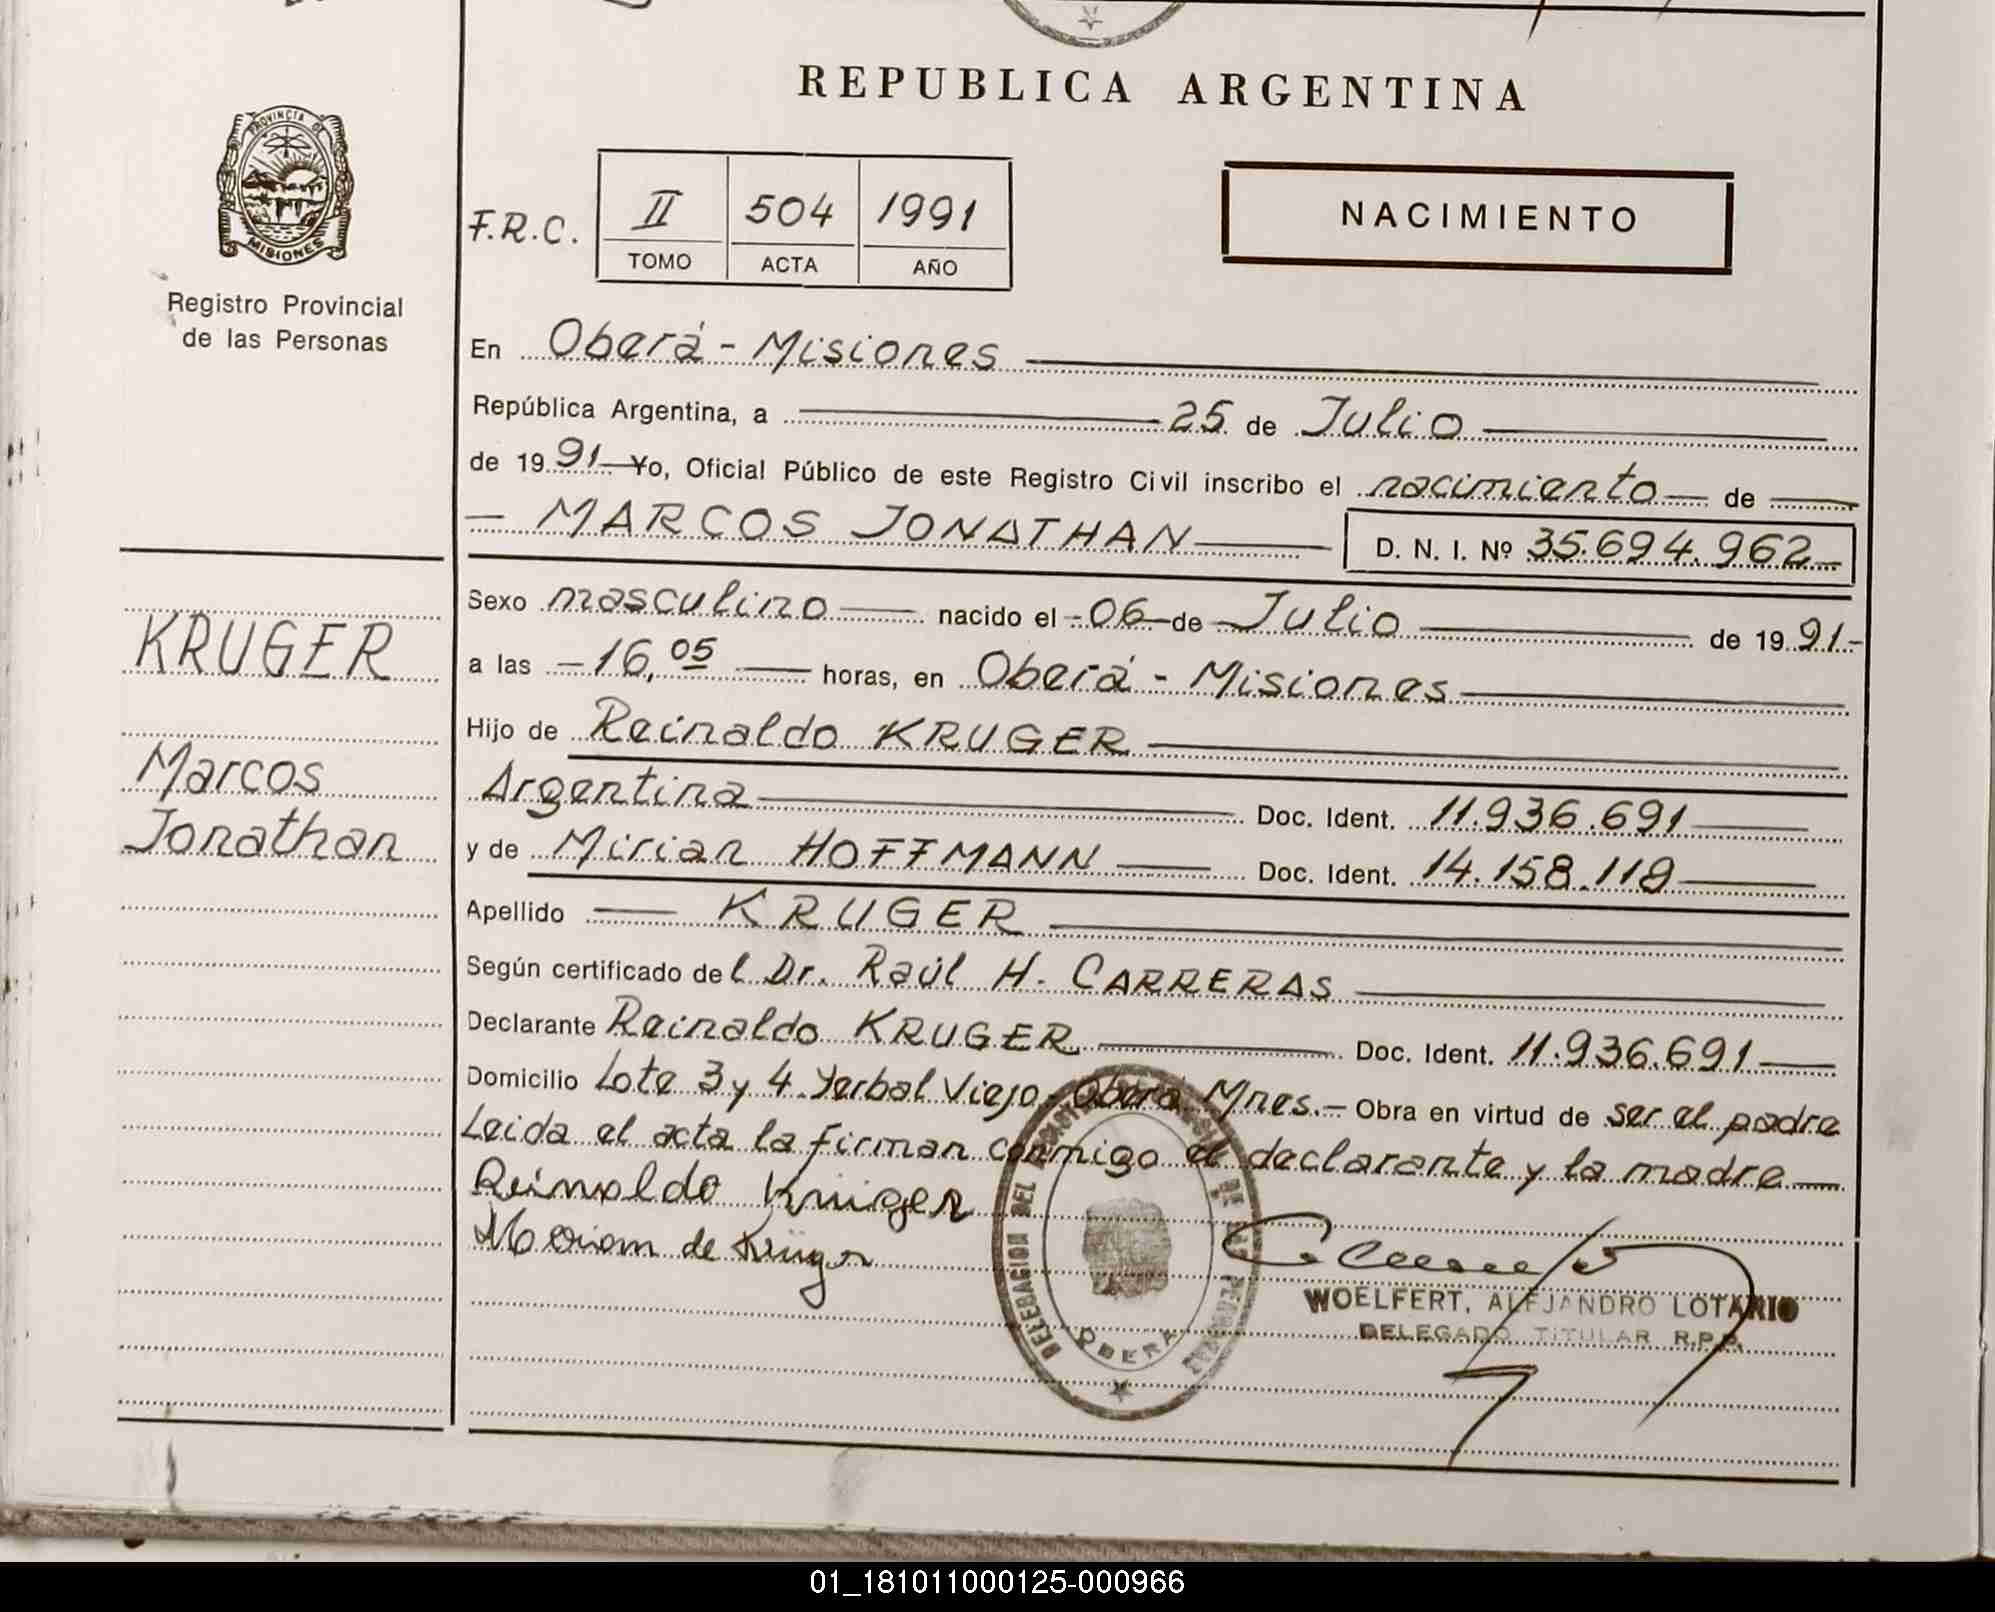 REPUBLICA ARGENTINA
PROVINCIA DE
MISIONES
Registro Provincial
de las Personas
F.R.C.
II 504 1991
TOMO ACTA AÑO
NACIMIENTO
En Oberá - Misiones
República Argentina, a 25 de Julio
de 1991 Yo, Oficial Público de este Registro Civil inscribo el nacimiento de
MARCOS JONATHAN D. N. I. Nº 35.694.962
Sexo masculino nacido el 06 de Julio de 1991-
a las 16,05 horas, en Oberá - Misiones
Hijo de Reinaldo KRUGER
Argentina Doc. Ident. 11.936.691
y de Mirian HOFFMANN Doc. Ident. 14.158.118
Apellido KRUGER
Según certificado del Dr. Raúl H. CARRERAS
Declarante Reinaldo KRUGER Doc. Ident. 11.936.691
Domicilio Lote 3 y 4 Yerbal Viejo - Oberá Mnes.- Obra en virtud de ser el padre
Leida el acta la firman conmigo el declarante y la madre
Reinaldo Krüger
de Krüger
DELEGACION DEL DE LAS PERSONAS
OBERA
WOELFERT, ALEJANDRO LOTARIO
DELEGADO TITULAR R.P.P.
KRUGER
Marcos
Jonathan
01_181011000125-000966